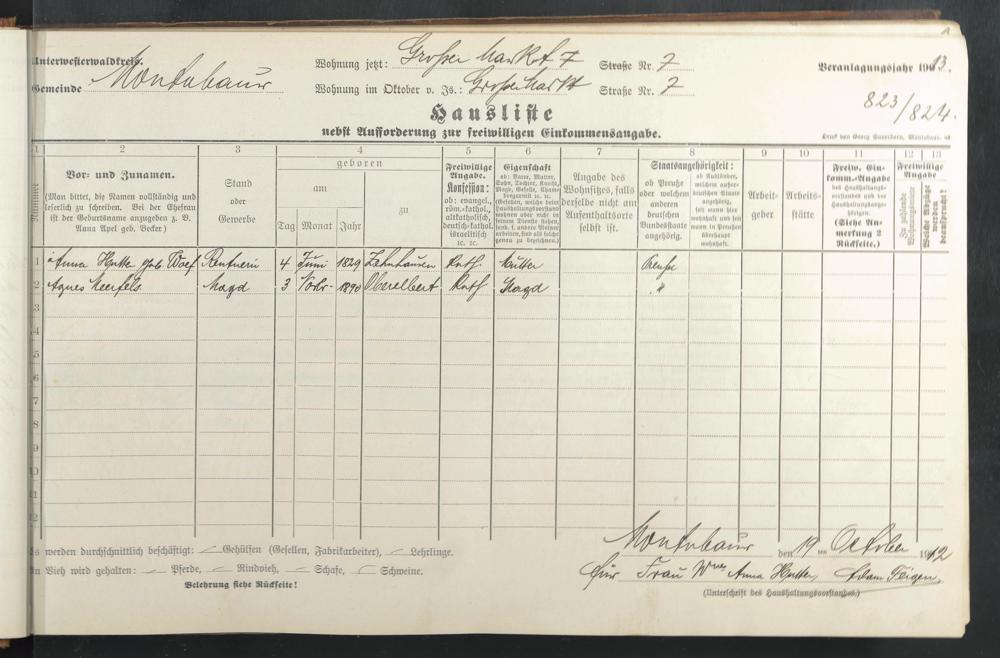 Unterwesterwaldkreis.
Gemeinde Montabaur
Wohnung jetzt: Großer Markt 7 Straße Nr. 7
Wohnung im Oktober v. Js.: Großer Markt Straße Nr. 7
Veranlagungsjahr 1913.
823/824.
Hausliste
nebst Aufforderung zur freiwilligen Einkommensangabe.
1 2 3 4 5 6 7 8 9 10 11 12 13
Nummer
Vor- und Zunamen.
(Man bittet, die Namen vollständig und
leserlich zu schreiben. Bei der Ehefrau
ist der Geburtsname anzugeben z. B.
Anna Apel geb. Becker)
Stand
oder
Gewerbe
geboren
am
zu
Tag Monat Jahr
Freiwillige
Angabe.
Konfession:
ob: evangel.,
röm.-kathol.,
altkatholisch,
deutsch-kathol.
israelitisch
ic. ic.
Eigenschaft
ob: Vater, Mutter,
Sohn, Tochter, Knecht,
Angabe des
Wohnsitzes, falls
derselbe nicht am
Aufenthaltsorte
selbst ist.
Staatsangehörigkeit:
ob Preuße
oder welchem
anderen
deutschen
Bundesstaate
angehörig.
ob Ausländer,
welchem außer-
deutschen Staate
angehörig,
seit wann hier
wohnhaft und seit
wann in Preußen
überhaupt
wohnhaft.
Arbeit-
geber
Arbeits-
stätte
Freiw. Ein-
komm.-Angabe
des Haushaltungs-
vorstandes und der
Haushaltungsange-
hörigen.
(Siehe An-
merkung 2
Rückseite.)
Freiwillige
Angabe
Zu zahlende
Wohnungsmiete
Welche Abzüge
werden
beansprucht?
1 Anna Hütte geb. Rentnerin 4 Juni 1829 Kath. Mutter Preuße
2 Agnes Magd 3 1890 Oberelbert Kath Magd "
3
4
5
6
7
8
9
10
11
12
Es werden durchschnittlich beschäftigt: Gehülfen (Gesellen, Fabrikarbeiter), Lehrlinge.
An Vieh wird gehalten: Pferde, Rindvieh, Schafe, Schweine.
Belehrung siehe Rückseite!
Montabaur den 19 ten October 1912
Für Frau Wwe Anna Hütte, Adam Feigen
(Unterschrift des Haushaltungsvorstandes)